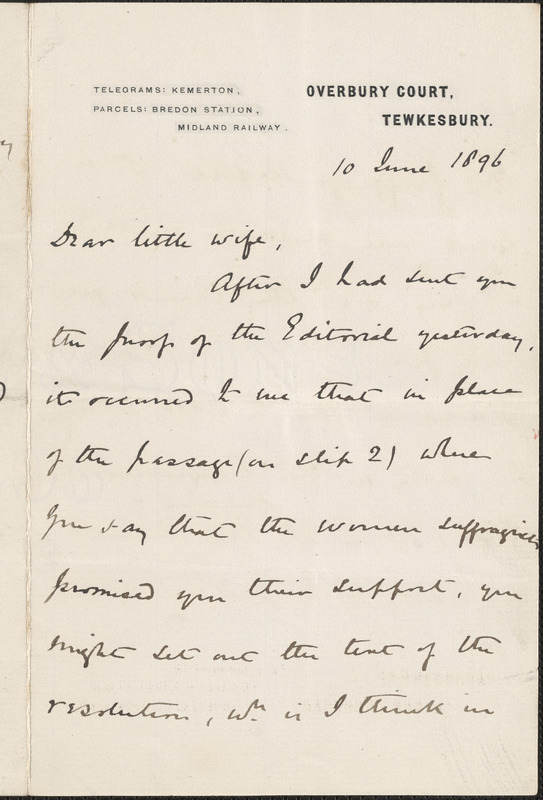 TELEGRAMS: KEMERTON,
PARCELS: BREDON STATION,
MIDLAND RAILWAY.
OVERBURY COURT,
TEWKESBURY.
10 June 1896
Dear little wife,
After I had sent you
the proof of the Editorial yesterday,
it occurred to me that in place
of the passage (on slip 2) where
you say that the women suffragists
promised you their support, you
might set out the text of the
resolution, wh. is I think in